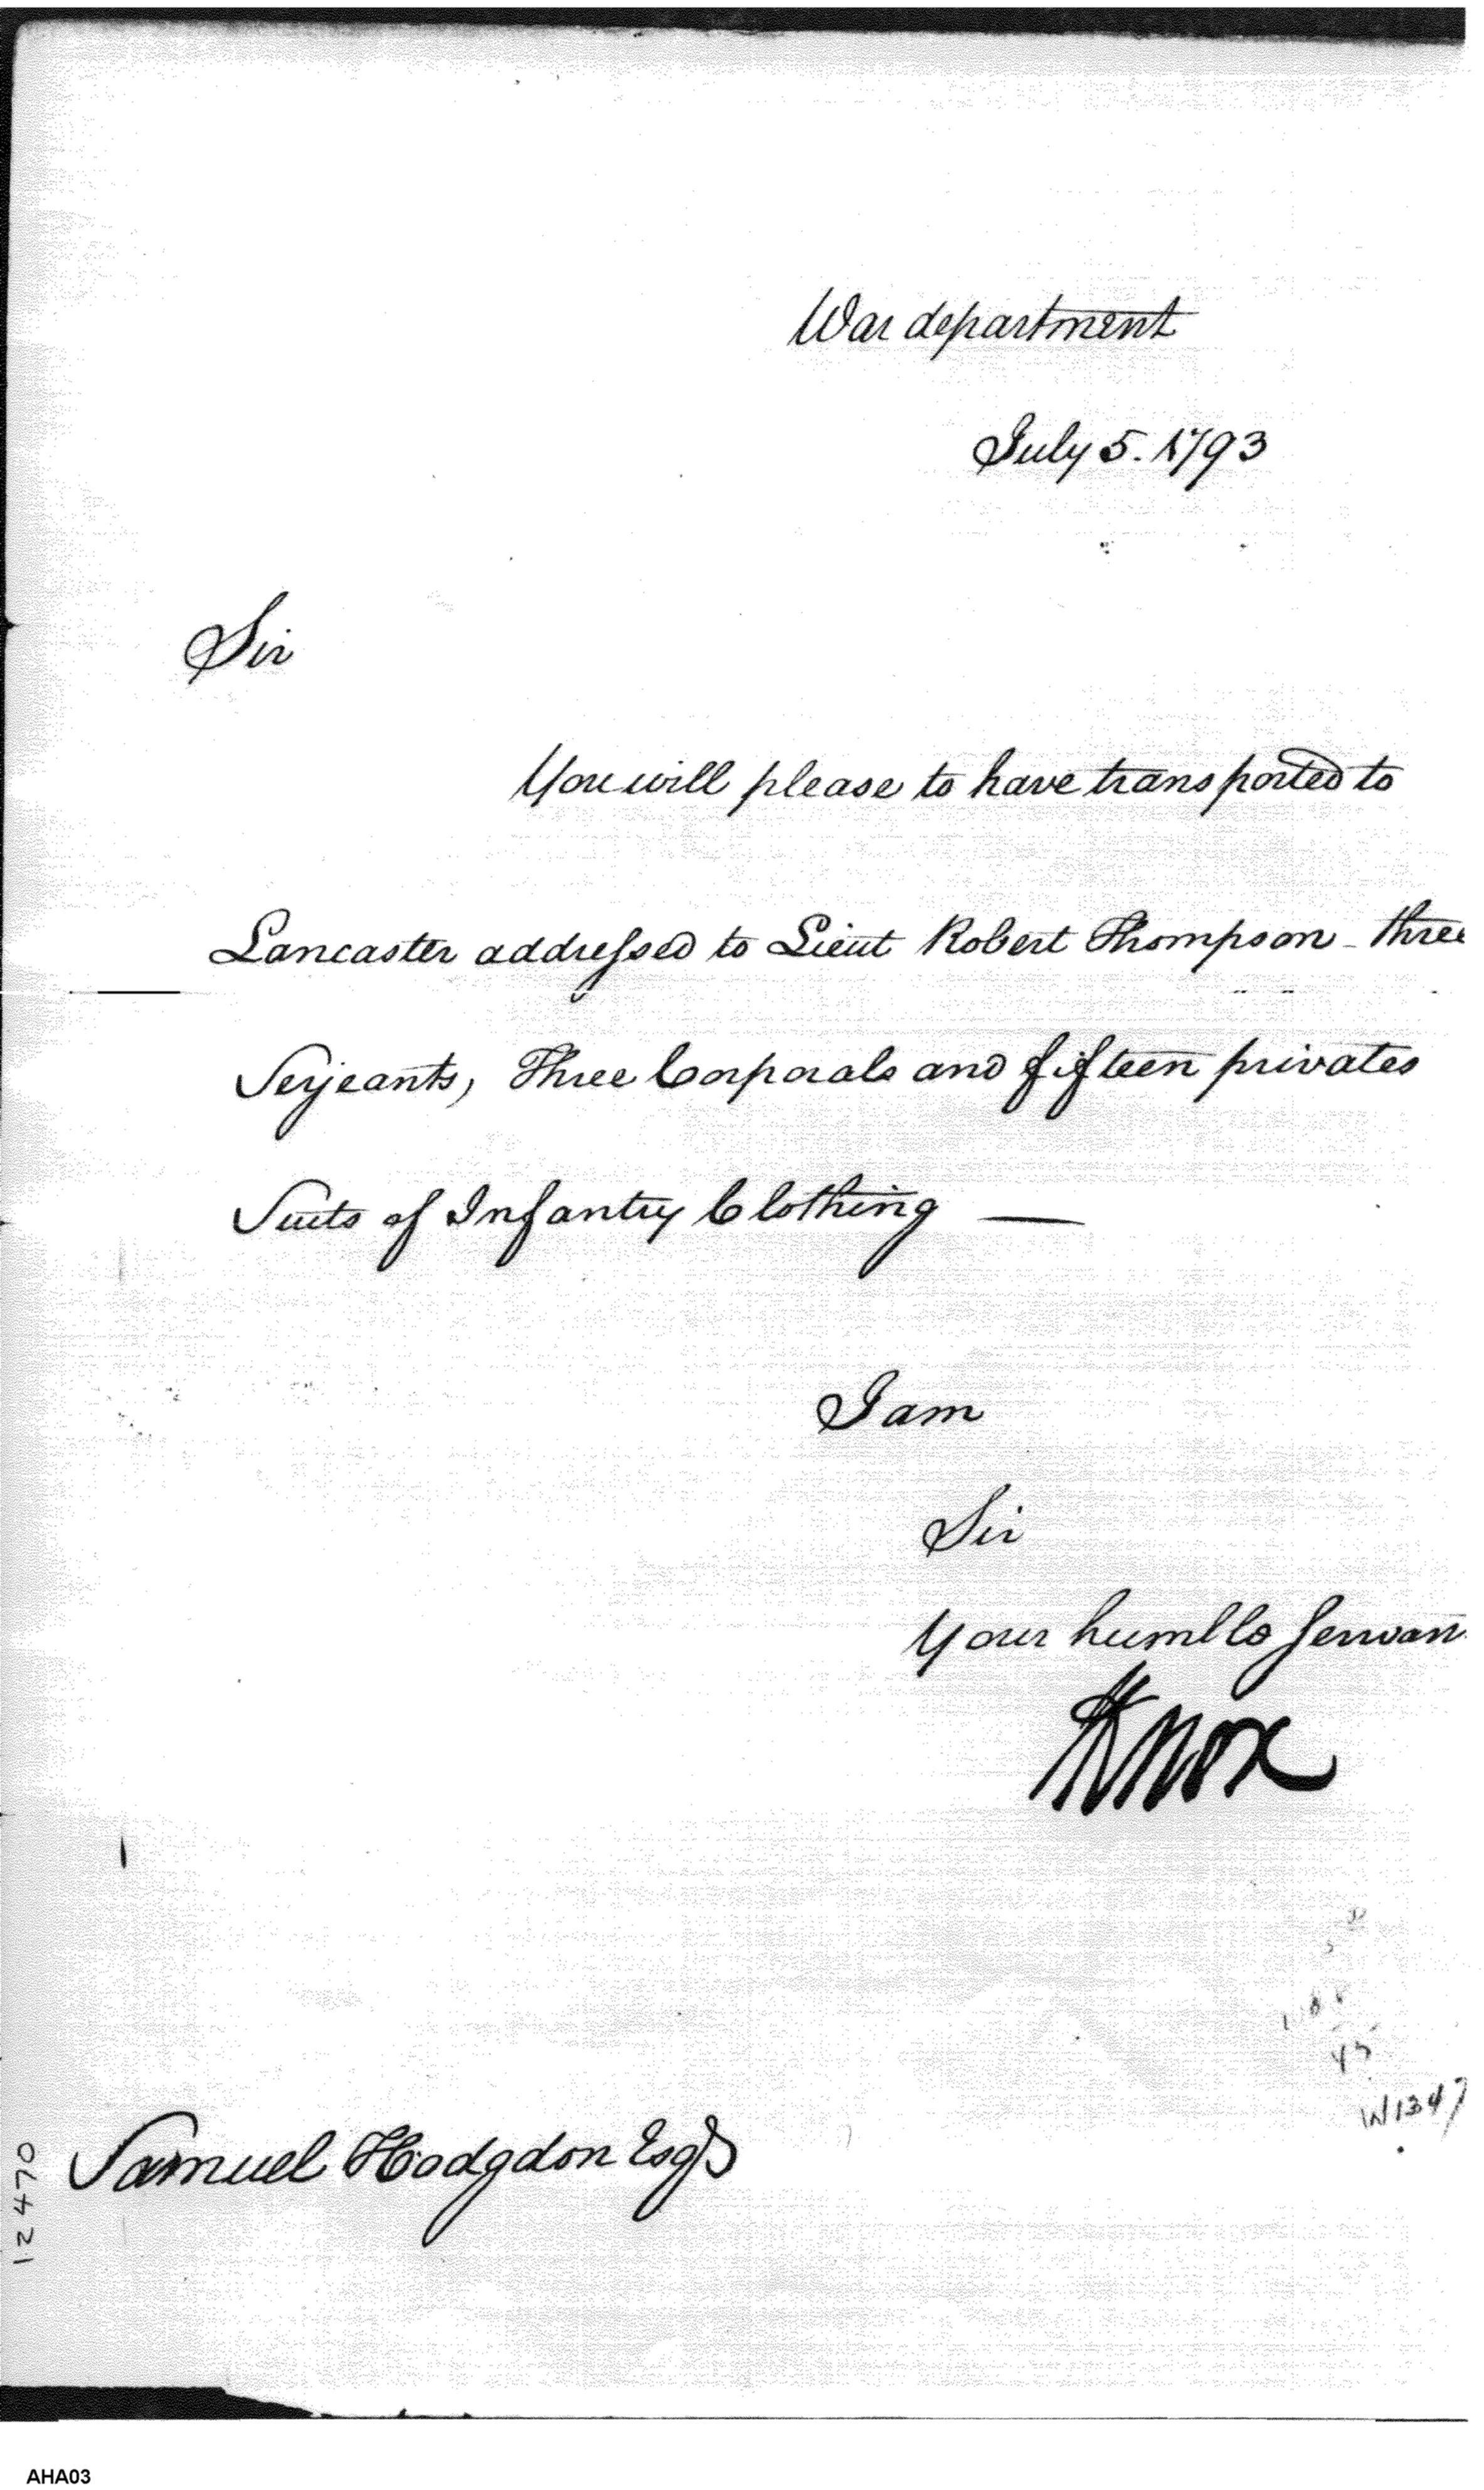 War department
July 5. 1793
Sir
You will please to have transported to
Lancaster addressed to Lieut Robert Thompson - three
Serjeants, Three Corporals and fifteen privates
Suits of Infantry Clothing —
I am
Sir
Your humble Servan
HKnox
W1347
Samuel Hodgdon Esqr
12470
AHA03